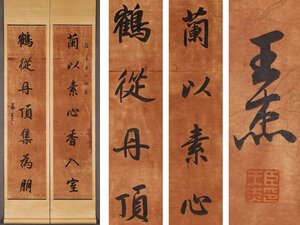 蘭以素心香入室
鶴從丹頂集為朋
鶴從丹頂
蘭以素心
王杰